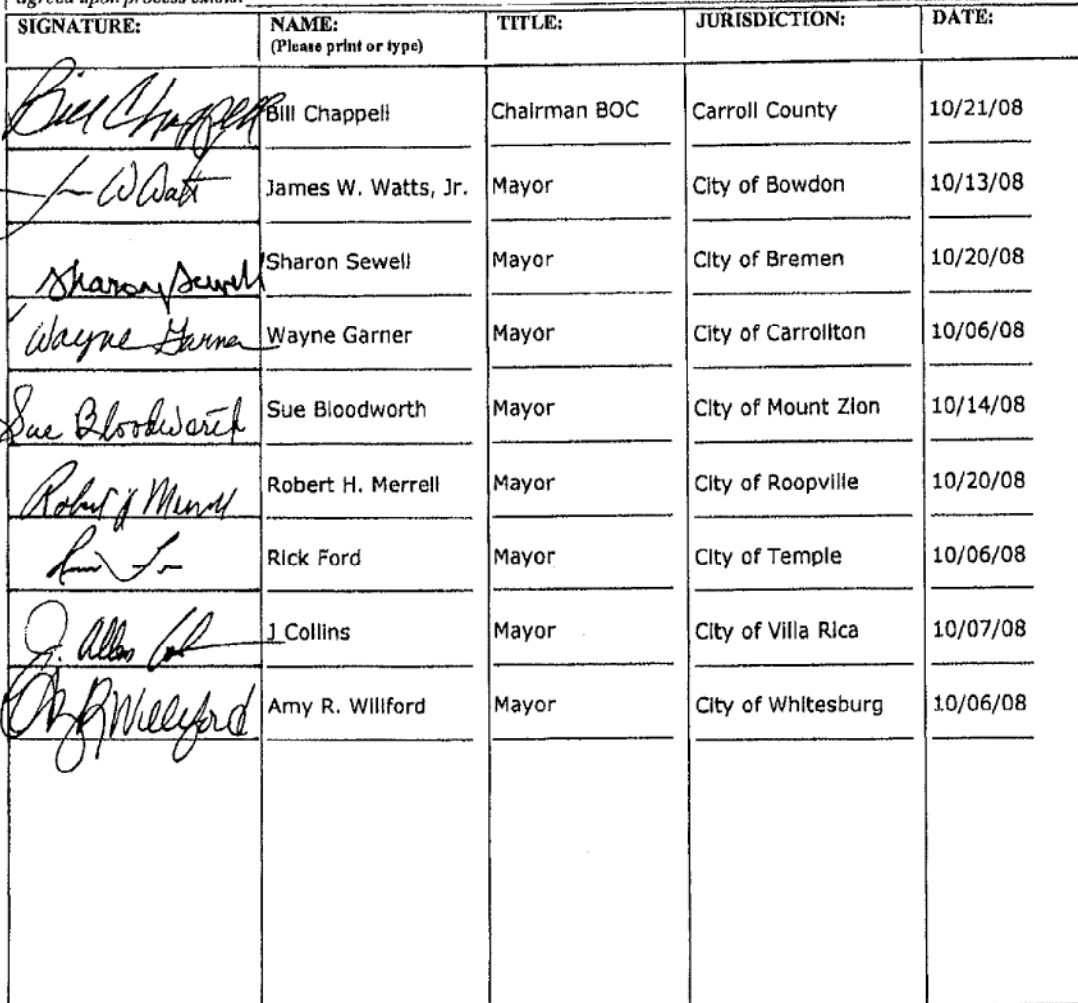 agreed upon process exists.
SIGNATURE: NAME: TITLE: JURISDICTION: DATE:
(Please print or type)
Bill Chappell Bill Chappell Chairman BOC Carroll County 10/21/08
W Watt James W. Watts, Jr. Mayor City of Bowdon 10/13/08
Sharon Sewell Sharon Sewell Mayor City of Bremen 10/20/08
Wayne Garner Wayne Garner Mayor City of Carrollton 10/06/08
Sue Bloodworth Sue Bloodworth Mayor City of Mount Zion 10/14/08
Robert H Merrell Robert H. Merrell Mayor City of Roopville 10/20/08
Rick Ford Mayor City of Temple 10/06/08
J. Allen J Collins Mayor City of Villa Rica 10/07/08
Amy R Williford Amy R. Williford Mayor City of Whitesburg 10/06/08